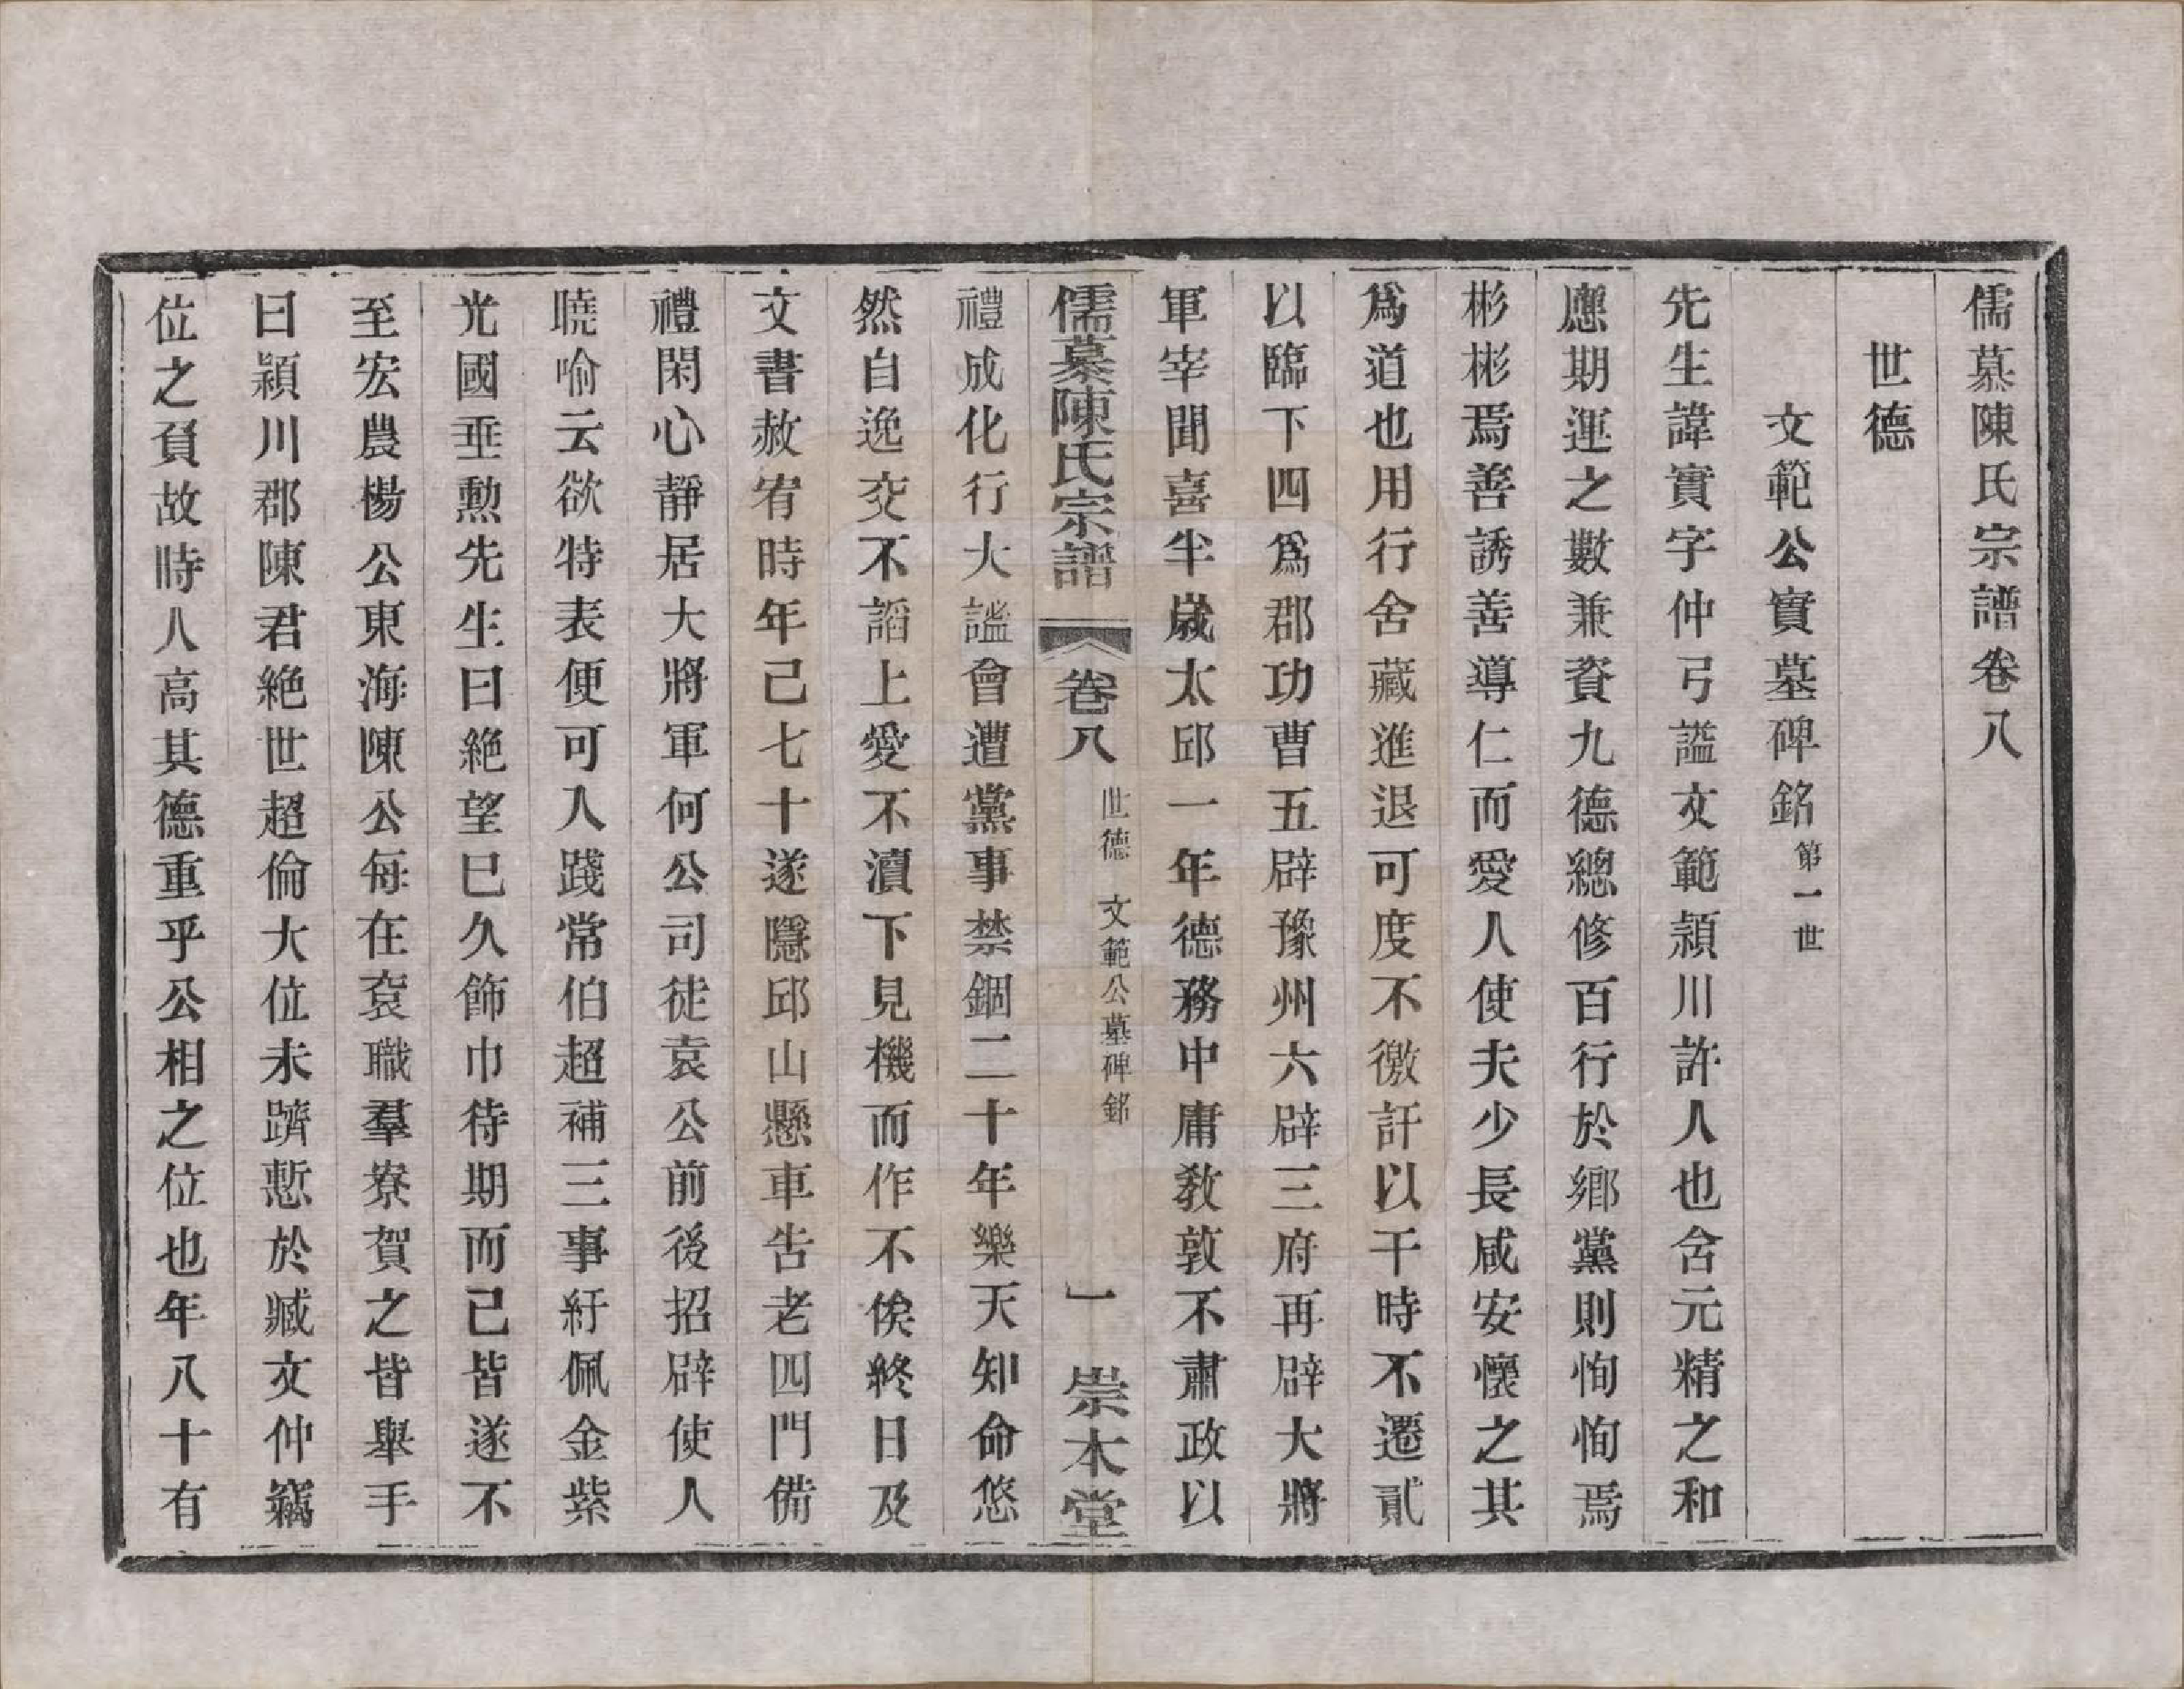 儒慕陳氏宗譜卷八
世德
文範公實墓碑銘第一世
先生諱實字仲弓謚文範潁川許人也含元精之和
應期運之數兼資九德總修百行於鄉黨則恂恂焉
彬彬焉善誘善導仁而愛人使夫少長咸安懷之其
爲道也用行舍藏進退可度不徼訐以干時不遷貳
以臨下四爲郡功曹五辟豫州六辟三府再辟大將
軍宰聞喜半歲太邱一年德務中庸敎敦不肅政以
儒慕陳氏宗譜 卷八 世德 文範公墓碑銘 一 崇本堂
禮成化行大謐會遭黨事禁錮二十年樂天知命悠
然自逸交不謟上愛不瀆下見機而作不俟終日及
文書赦宥時年己七十遂隱邱山懸車告老四門備
禮閑心靜居大將軍何公司徒袁公前後招辟使人
曉喻云欲特表便可入踐常伯超補三事紆佩金紫
光國垂勲先生曰絶望巳久飾巾待期而己皆遂不
至宏農楊公東海陳公每在衮職羣寮賀之皆舉手
曰潁川郡陳君絶世超倫大位未躋慙於臧文仲竊
位之負故時人高其德重乎公相之位也年八十有